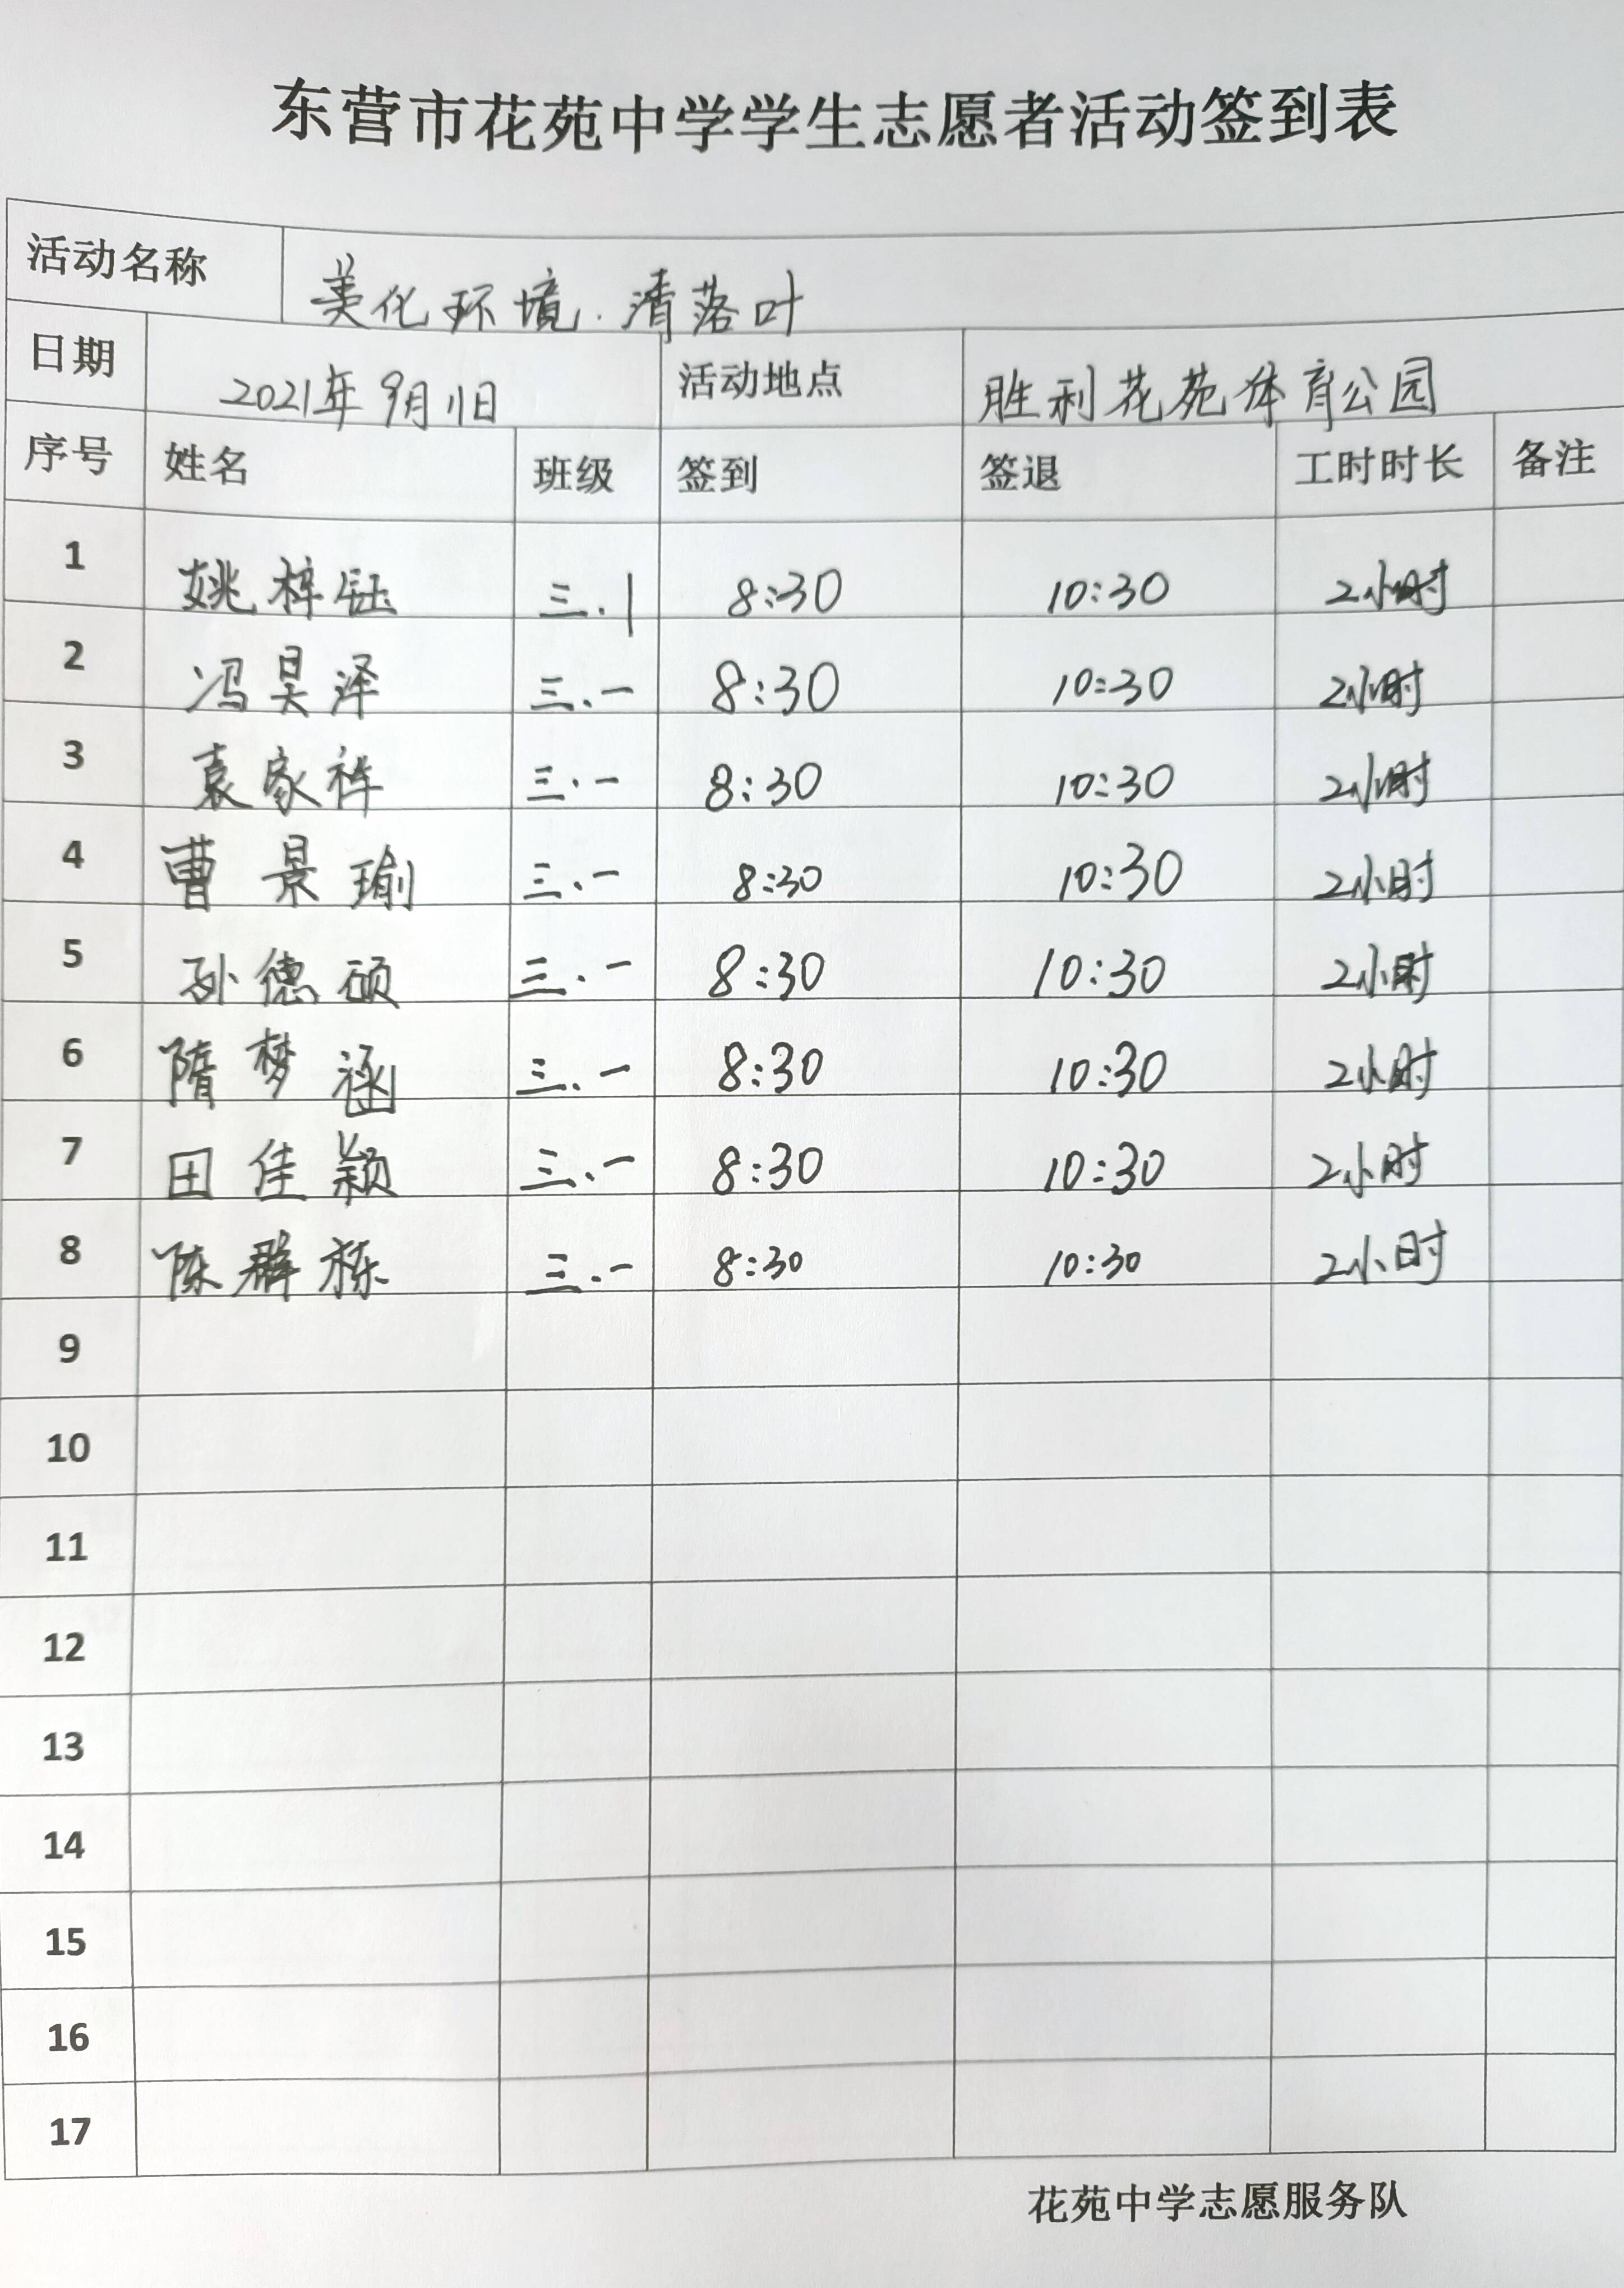 东营市花苑中学学生志愿者活动签到表
活动名称 美化环境.清落叶
日期 2021年9月11日 活动地点 胜利花苑体育公园
序号 姓名 班级 签到 签退 工时时长 备注
1 姚梓钰 三.1 8:30 10:30 2小时
2 冯昊泽 三.一 8:30 10:30 2小时
3 袁家祥 三.一 8:30 10:30 2小时
4 曹景瑜 三.一 8:30 10:30 2小时
5 孙德硕 三.一 8:30 10:30 2小时
6 隋梦涵 三.一 8:30 10:30 2小时
7 田佳颖 三.一 8:30 10:30 2小时
8 陈群栋 三.一 8:30 10:30 2小时
9
10
11
12
13
14
15
16
17
花苑中学志愿服务队